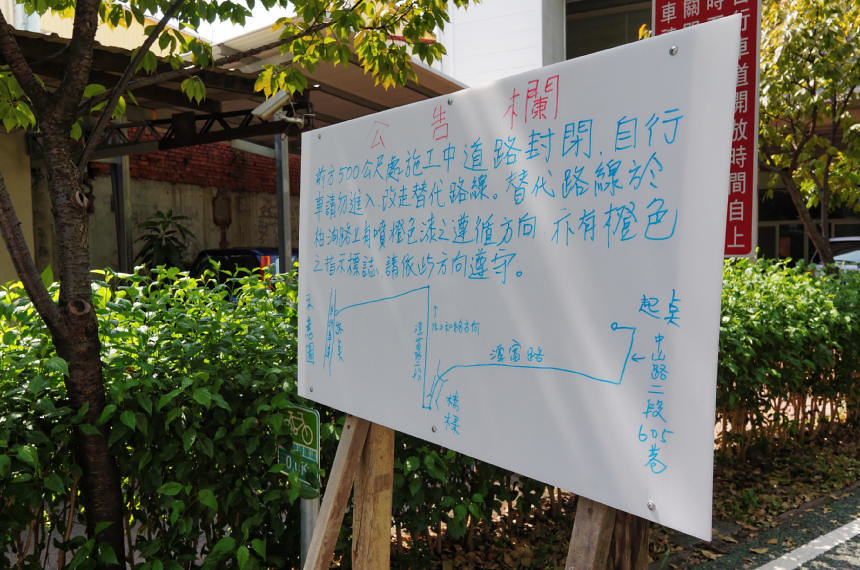 公告欄
前方500公尺處施工中道路封閉,自行
車請勿進入,改走替代路線。替代路線於
柏油路上有噴橙色漆之遵循方向 亦有橙色
之指示標誌、請依此方向遵守。
起點
中山路二段605巷
潭富路
橋樑
自行車道開放時間自上